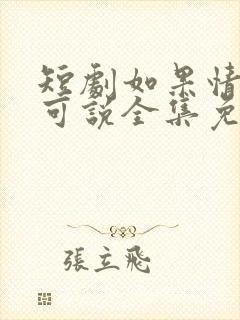 短劇如果情
可說全集免
張立飛